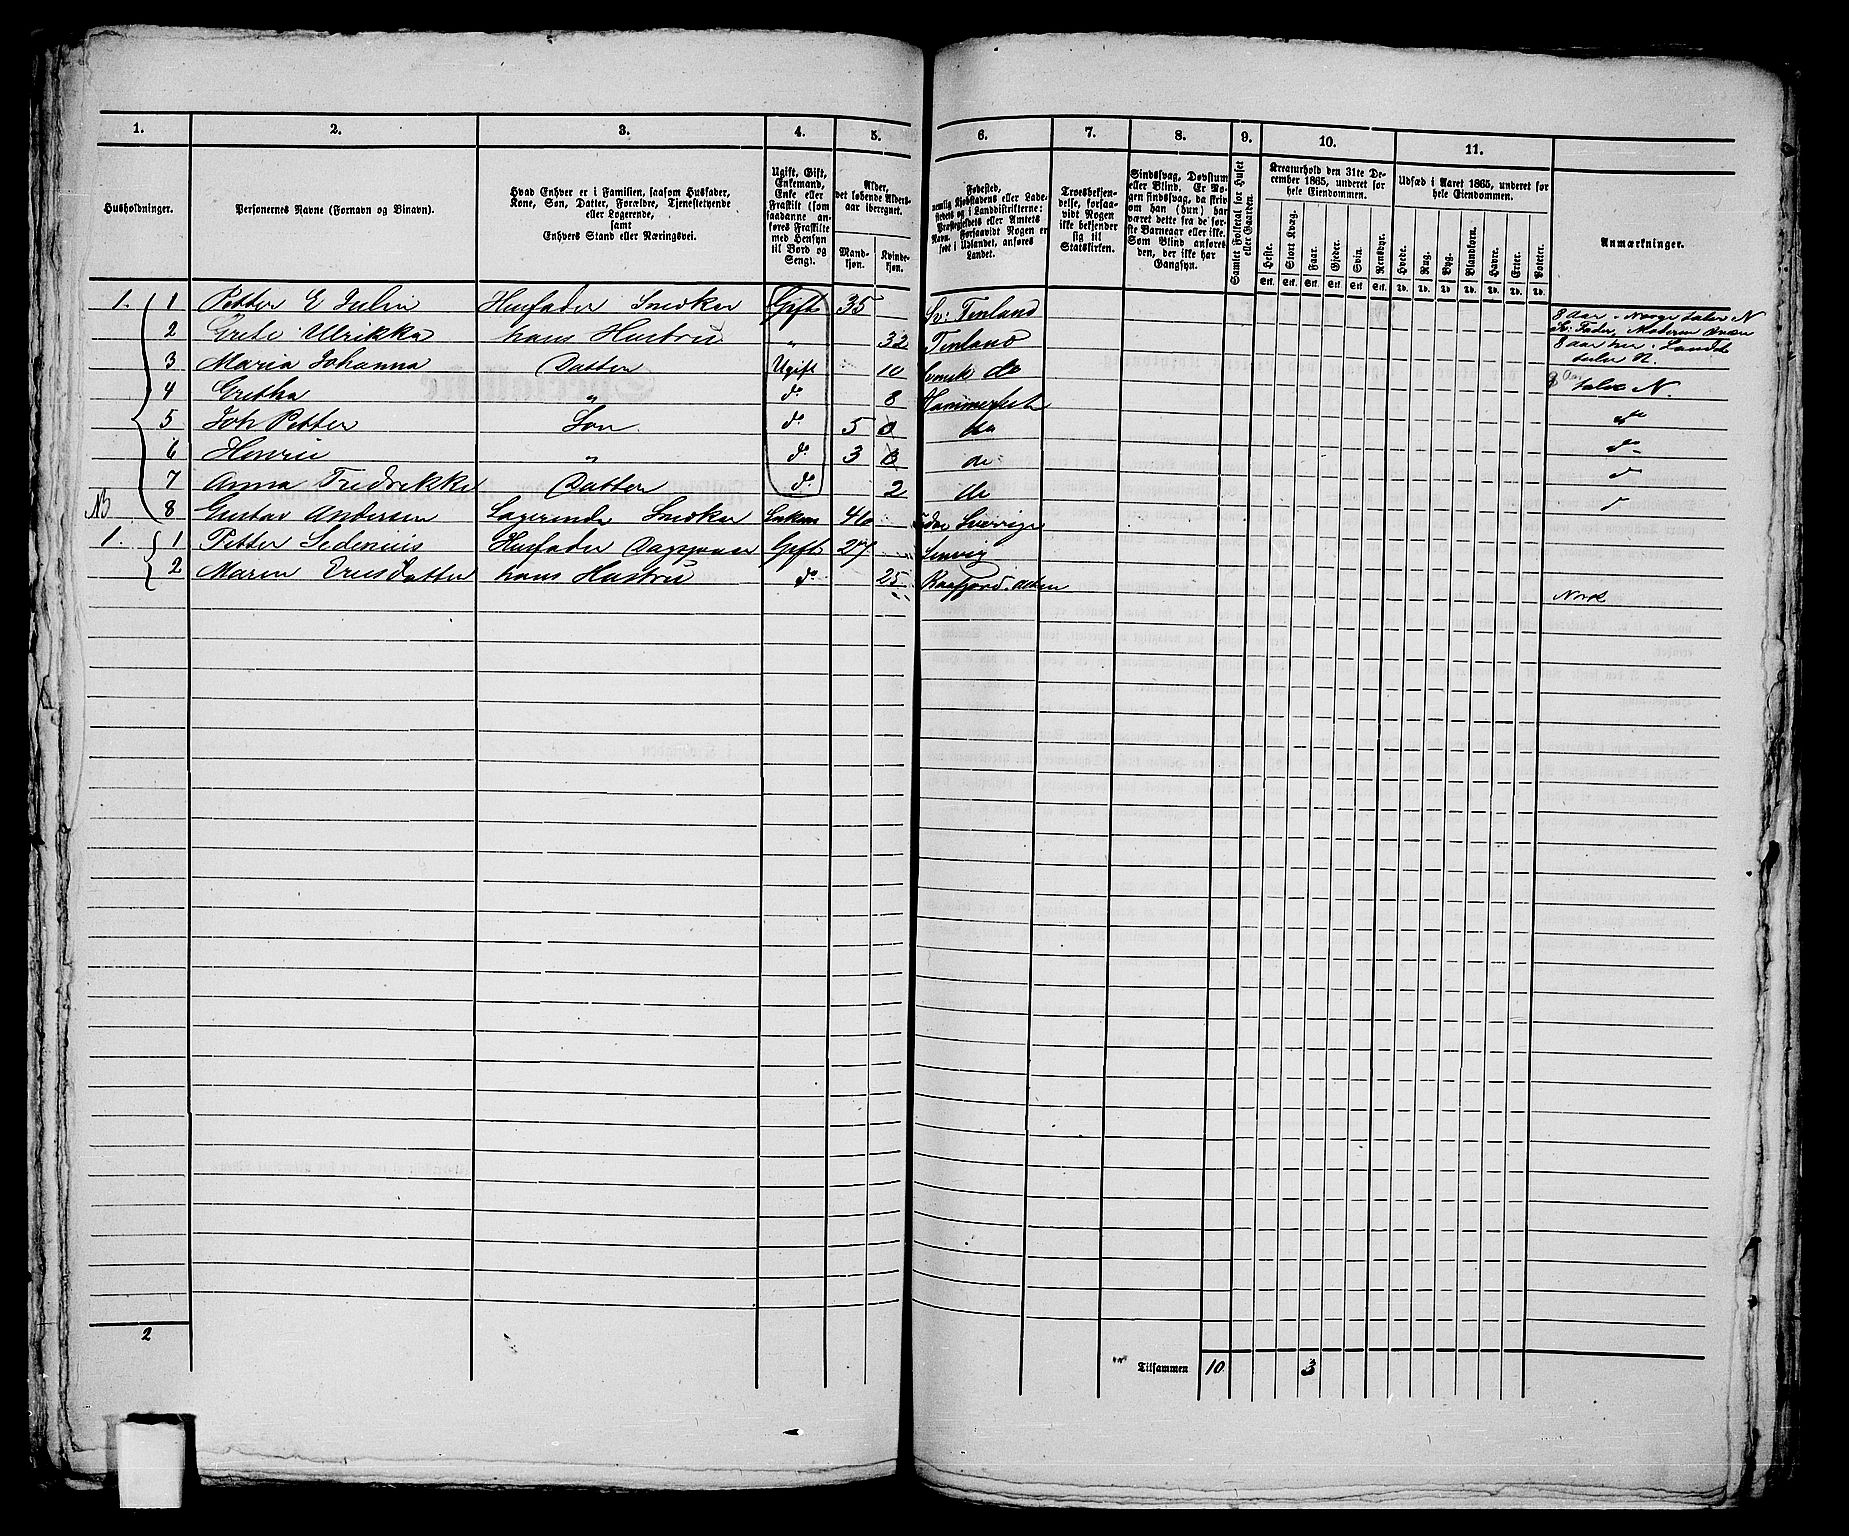 1. 2. 3. 4. 5. 6. 7. 8. 9. 10. 11.
Husholdninger.
Personernes Navne (Fornavn og Binavn).
Hvad Enhver er i Familien, saasom Husfader,
Kone, Søn, Datter, Forældre, Tjenestetyende
eller Logerende,
samt
Enhvers Stand eller Næringsvei.
Ugift, Gift,
Enkemand,
Enke eller
Fraskilt (som
saadanne an-
føres Fraskilte
med Hensyn
til Bord og
Seng).
Alder,
det løbende Alders-
aar iberegnet.
Mand-
kjøn.
Kvinde-
kjøn.
Fødested,
nemlig Kjøbstadens eller Lade-
stedets og i Landdistrikterne:
Præstegjeldets eller Amtets
Navn. Forsaavidt Nogen er
født i Udlandet, anføres
Landet.
Troesbekjen-
delse, forsaa-
vidt Nogen
ikke bekjender
sig til
Statskirken.
Sindssvag, Døvstum
eller Blind. Er No-
gen sindssvag, da skriv
om han (hun) har
været dette fra de før-
ste Barneaar eller ikke.
Som Blind anføres
den, der ikke har
Gangsyn.
Samlet Folketal for Huset
eller Gaarden.
Kreaturhold den 31te De-
cember 1865, underet for
hele Eiendommen.
Heste. Stort Kvæg. Faar. Gjeder. Svin. Rensdyr.
Stk. Stk. Stk. Stk. Stk. Stk.
Udsæd i Aaret 1865, underet for
hele Eiendommen.
Hvede. Rug. Byg. Blandkorn. Havre. Erter. Poteter.
Td. Td. Td. Td. Td. Td. Td.
Anmærkninger.
1. 1 Petter E Julin Husfader Snedker Gift 35 Sv: Finland 8 Aar i Norge taler N
2 Grete Ulrikka hans Hustru " 32 Finland
3 Maria Johanna Datter Ugift 10 Svensk do
8 aar her i Landet
taler N.
4 Gretha " do 8 Hammerfest taler N.
5 Joh Petter Søn do 5 do do
6 Henrik " do 3 do do
7 Anna Fredrekke Datter do 2 do
NB 8 Gustav Andersen Logerende Snedker Enkem 46 Sverrige
1. 1 Petter Sedenius Husfader Gift 27 Lenvig
2 Maren hans Hustru do 25 Kaafjord Alten Norsk
2
Tilsammen 10 3